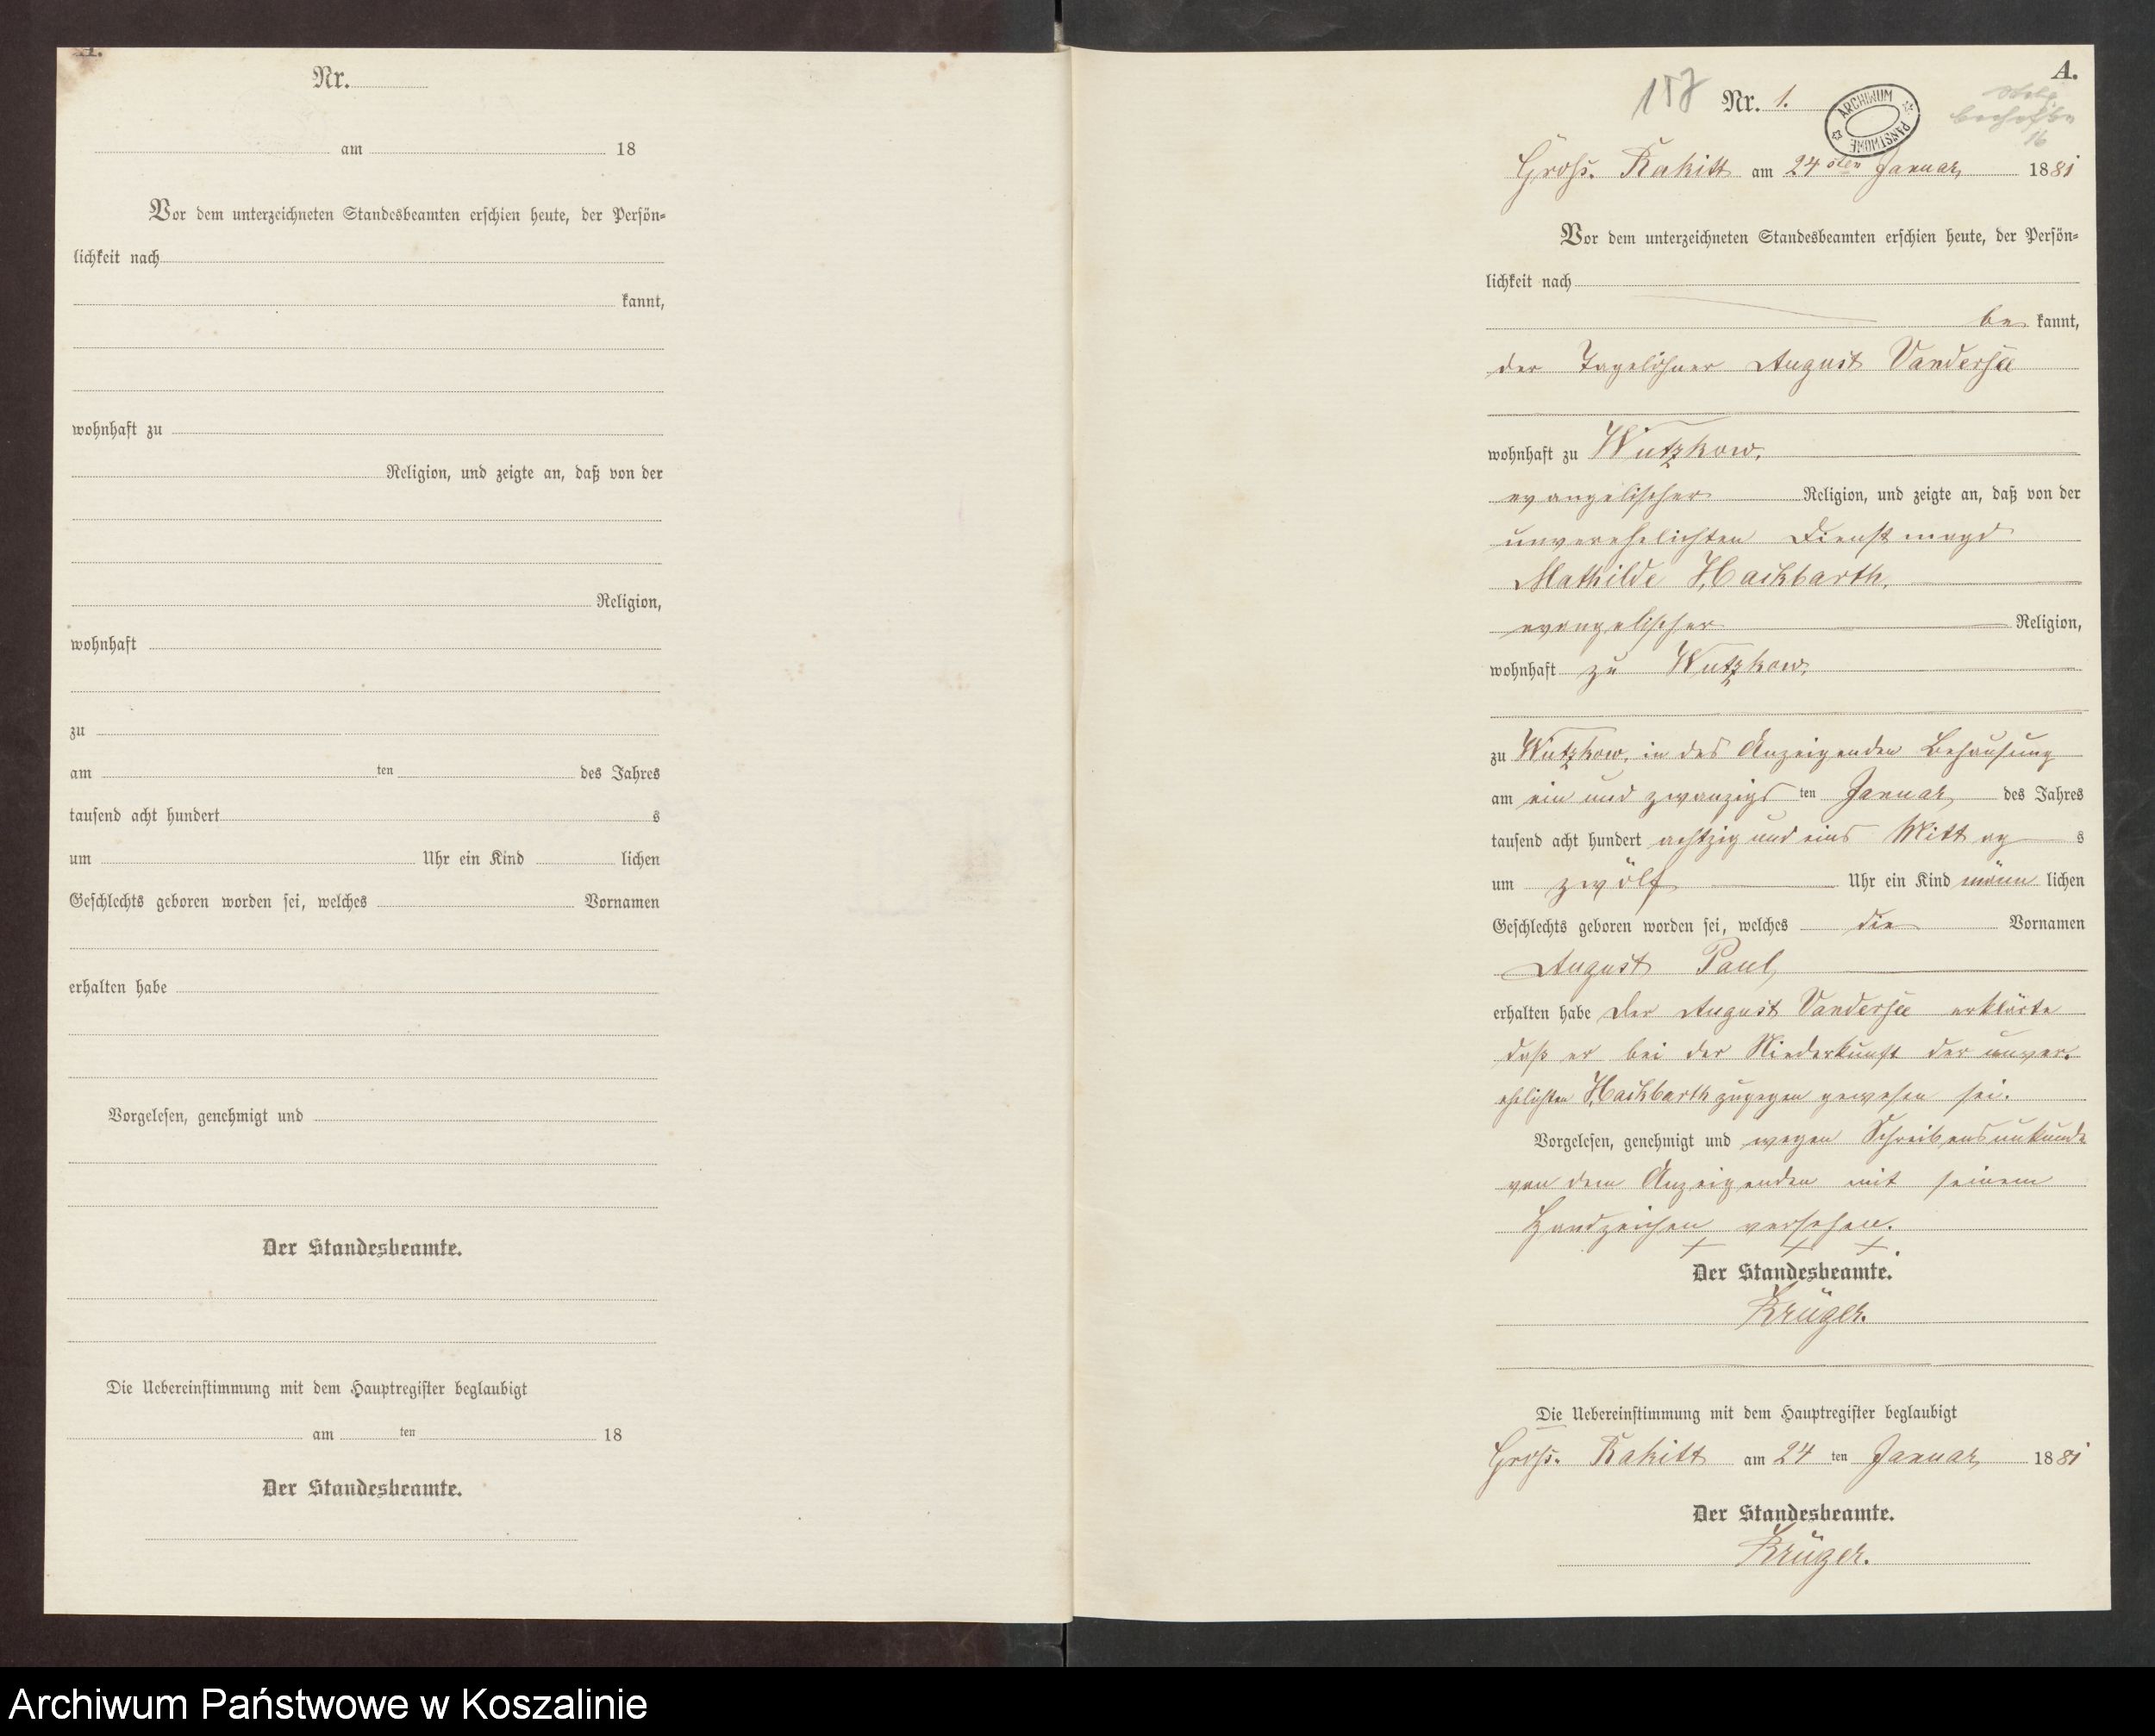 A.
Nr.
am 18
Vor dem unterzeichneten Standesbeamten erschien heute, der Persön-
lichkeit nach
kannt,
wohnhaft zu
Religion, und zeigte an, daß von der
Religion,
wohnhaft
zu
am ten des Jahres
tausend acht hundert s
um Uhr ein Kind lichen
Geschlechts geboren worden sei, welches Vornamen
erhalten habe
Vorgelesen, genehmigt und
Der Standesbeamte.
Die Uebereinstimmung mit dem Hauptregister beglaubigt
am ten 18
Der Standesbeamte.
A.
157 Nr. 1.
ARCHIWUM PAŃSTWOWE
16
Groß. Rakitt am 24 sten Januar 1881
Vor dem unterzeichneten Standesbeamten erschien heute, der Persön-
lichkeit nach
be kannt,
der Tagelöhner August Vandersee
wohnhaft zu Wutzkow,
evangelischer Religion, und zeigte an, daß von der
unverehelichten Dienstmagd
Mathilde Hackbarth,
evangelischer Religion,
wohnhaft zu Wutzkow,
zu Wutzkow, in des Anzeigenden Behausung
am ein und zwanzigs ten Januar des Jahres
tausend acht hundert achtzig und eins Mittag s
um zwölf Uhr ein Kind männ lichen
Geschlechts geboren worden sei, welches die Vornamen
August Paul,
erhalten habe Der August Vandersee erklärte
daß er bei der Niederkunft der unver-
ehelichten Hackbarth zugegen gewesen sei.
Vorgelesen, genehmigt und wegen Schreibensunkunde
von dem Anzeigenden mit seinem
Handzeichen versehen.
+ + +
Der Standesbeamte.
Krüger.
Die Uebereinstimmung mit dem Hauptregister beglaubigt
Groß. Rakitt am 24 ten Januar 1881
Der Standesbeamte.
Krüger.
Archiwum Państwowe w Koszalinie